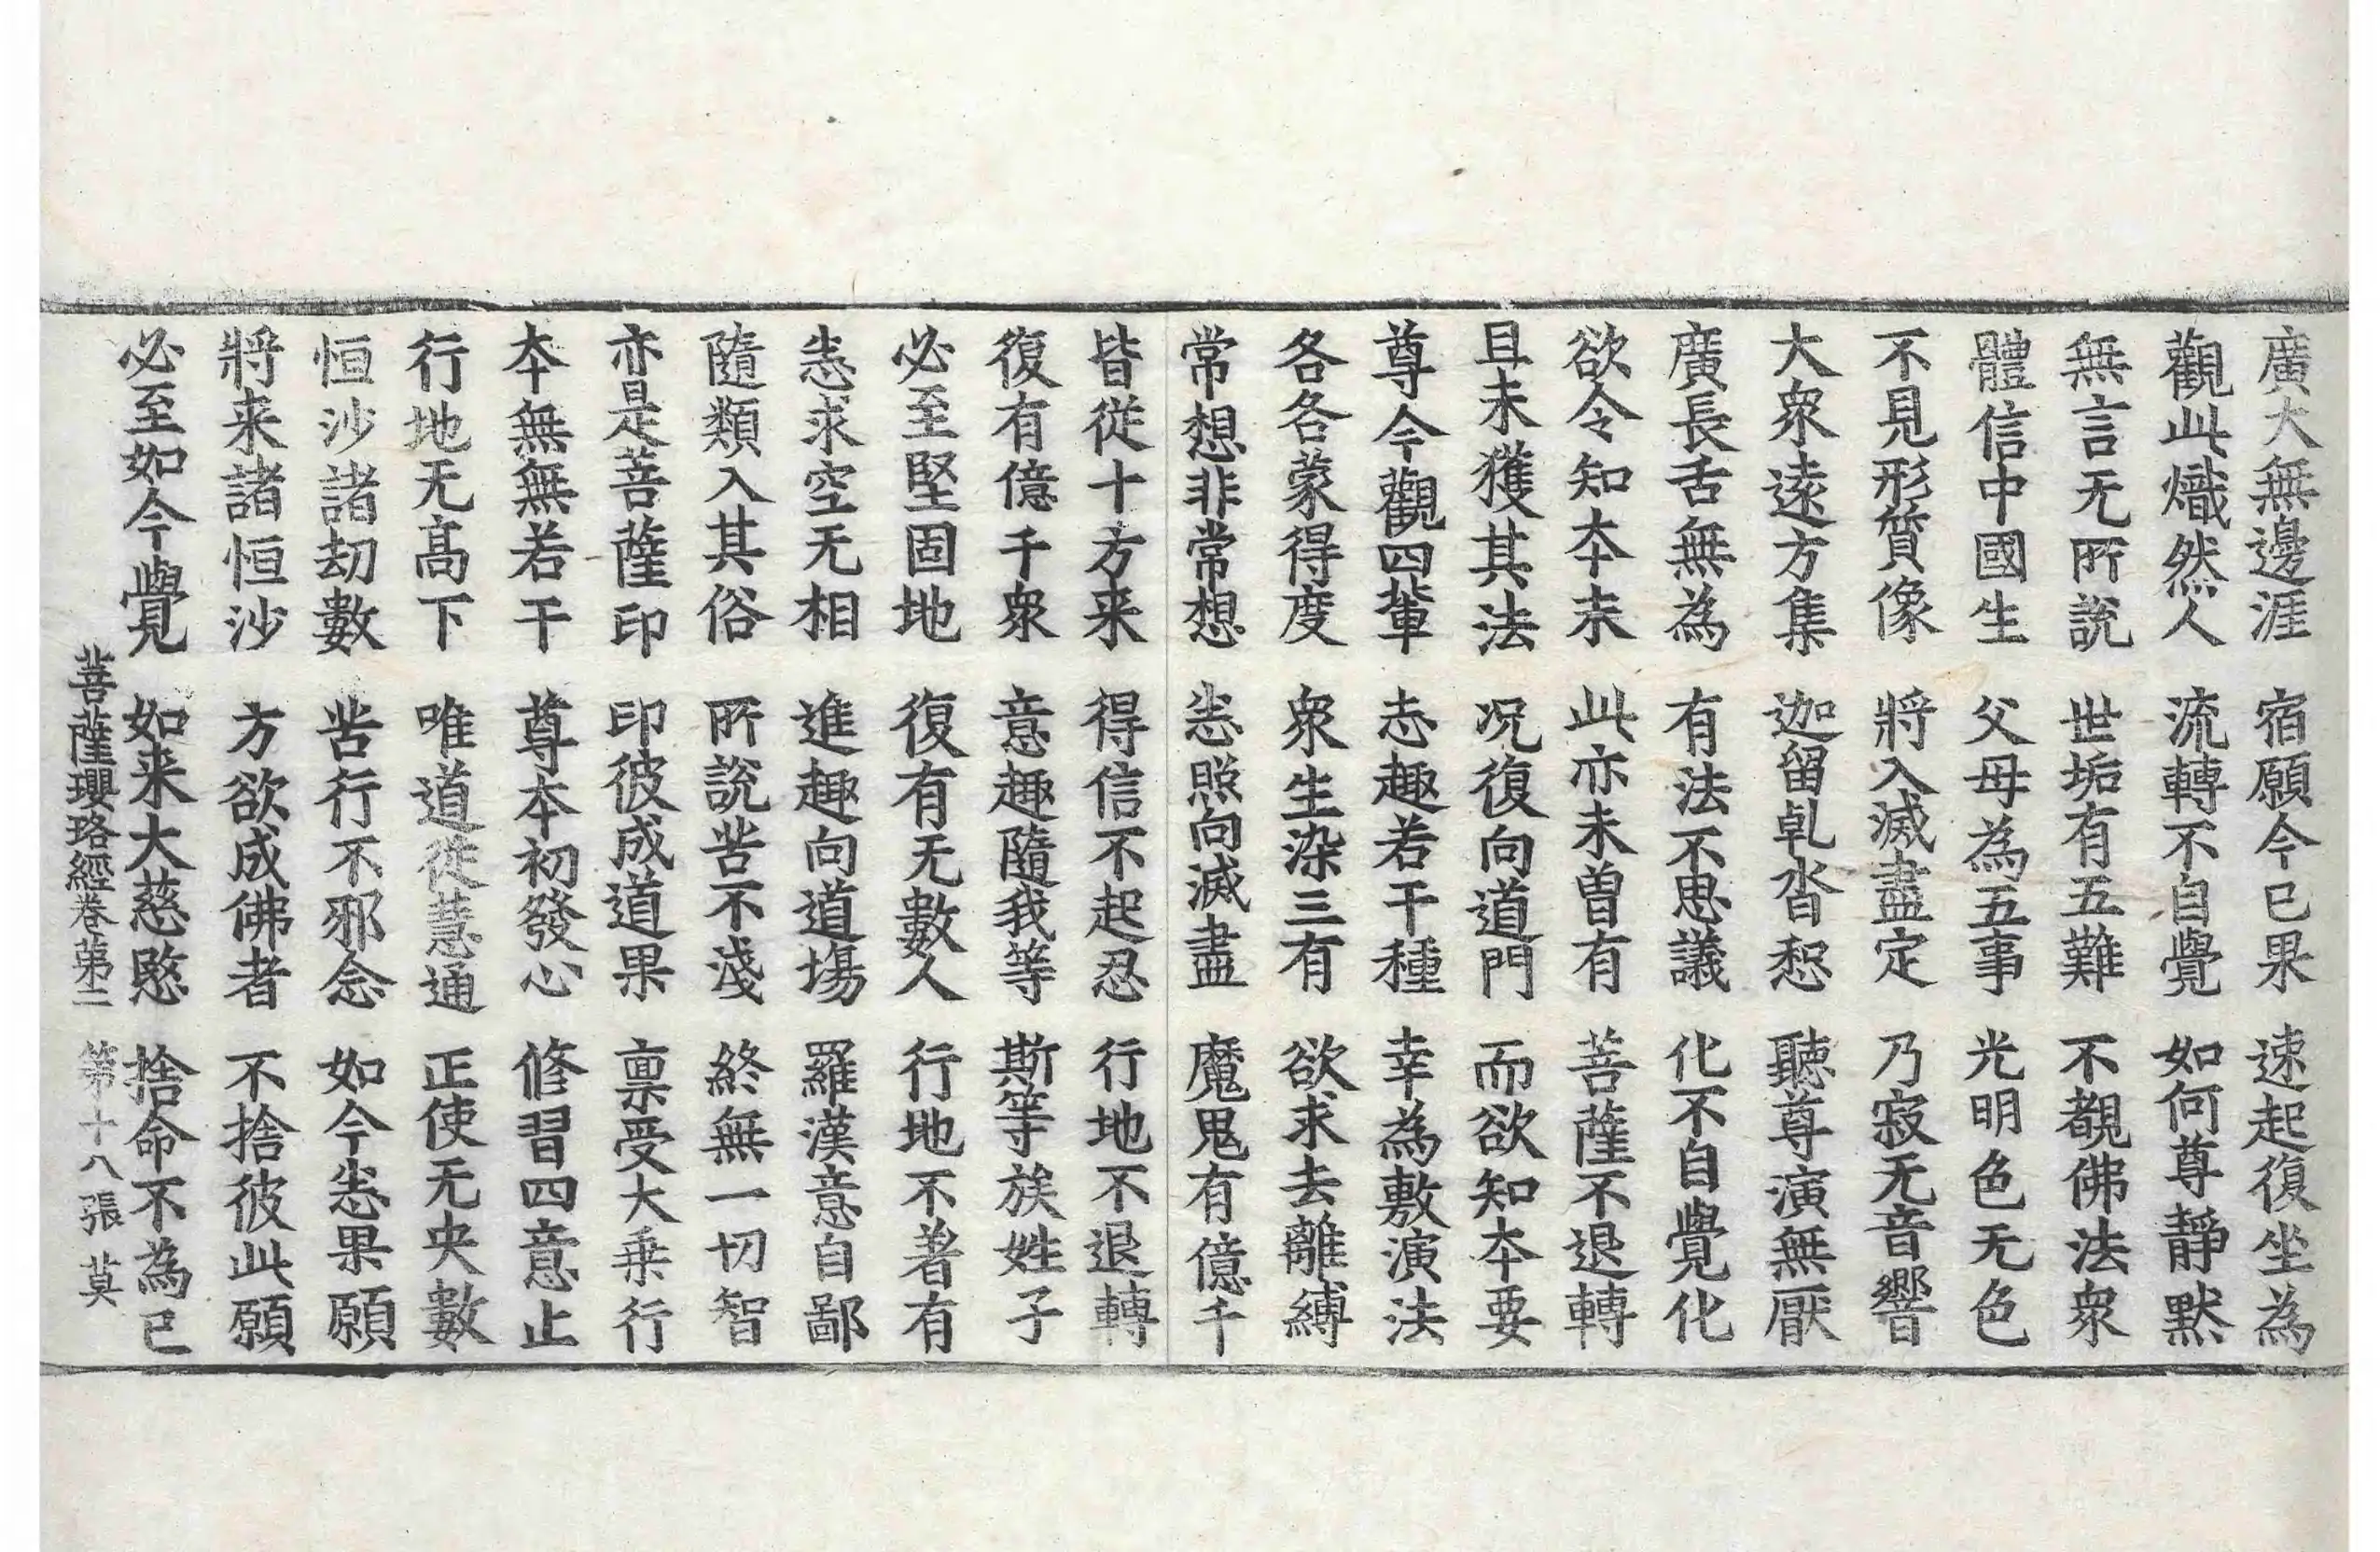 廣大無邊涯 宿願今已果 速起復坐為
觀此熾然人 流轉不自覺 如何尊靜默
無言无所說 世垢有五難 不覩佛法衆
體信中國生 父母為五事 光明色无色
不見形質像 將入滅盡定 乃寂无音響
大衆遠方集 迦留乹沓惒 聽尊演無厭
廣長舌無為 有法不思議 化不自覺化
欲令知本末 此亦未曾有 菩薩不退轉
且未獲其法 况復向道門 而欲知本要
尊今觀四輩 志趣若干種 幸為敷演法
各各蒙得度 衆生染三有 欲求去離縛
常想非常想 悉照向滅盡 魔鬼有億千
皆從十方来 得信不起忍 行地不退轉
復有億千衆 意趣隨我等 斯等族姓子
必至堅固地 復有无數人 行地不著有
悉求空无相 進趣向道場 羅漢意自鄙
隨類入其俗 所說苦不淺 終無一切智
亦是菩薩印 印彼成道果 禀受大乗行
本無無若干 尊本初發心 修習四意止
行地无高下 唯道從慧通 正使无央數
恒沙諸劫數 苦行不邪念 如今悉果願
將来諸恒沙 方欲成佛者 不捨彼此願
必至如今覺 如来大慈愍 捨命不為已
菩薩瓔珞經卷第二 第十八張 莫